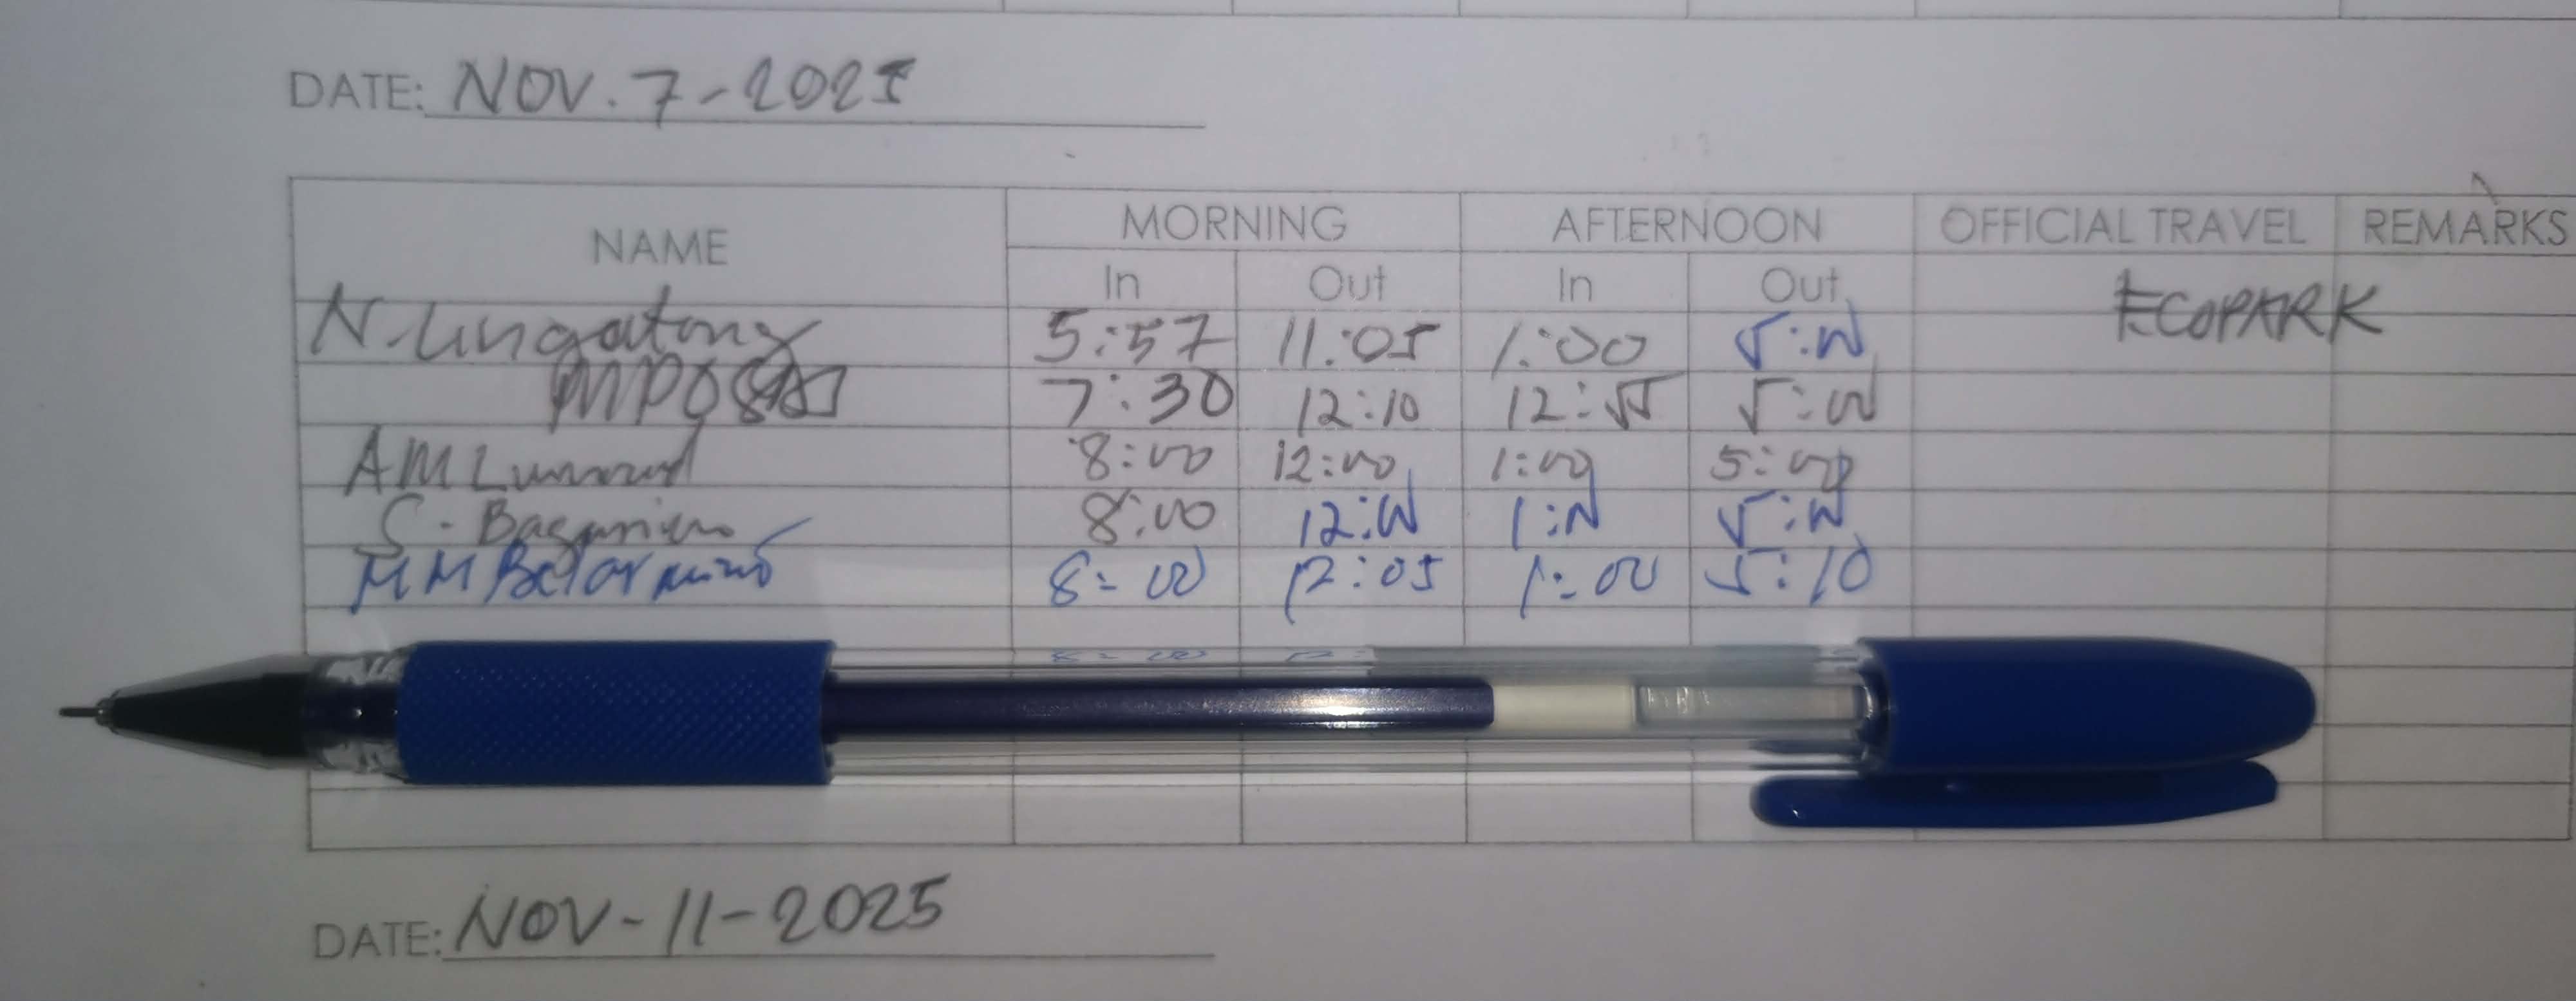 DATE: NOV. 7-2025
NAME MORNING AFTERNOON OFFICIAL TRAVEL REMARKS
In Out In Out
N. Lingatong 5:57 11:05 1:00 5:00 ECOPARK
7:30 12:10 12:55 5:00
AM 8:00 12:00 1:00 5:00
C. 8:00 12:00 1:00 5:00
MM Belarmino 8:00 12:05 1:00 5:10
DATE: NOV-11-2025